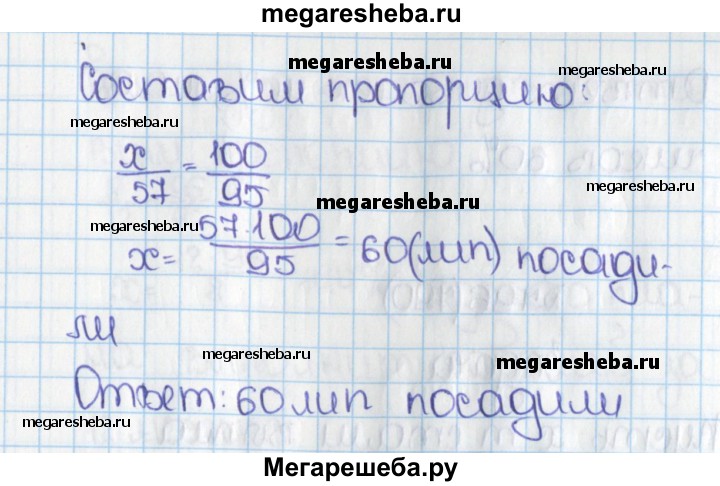 megaresheba.ru
megaresheba.ru
Составим пропорцию:
megaresheba.ru
megaresheba.ru
x/57 = 100/95
megaresheba.ru
megaresheba.ru
x = 57·100/95 = 60(лип) посади-
ли
megaresheba.ru
megaresheba.ru
Ответ: 60 лип посадили
megaresheba.ru
Мегарешеба.ру